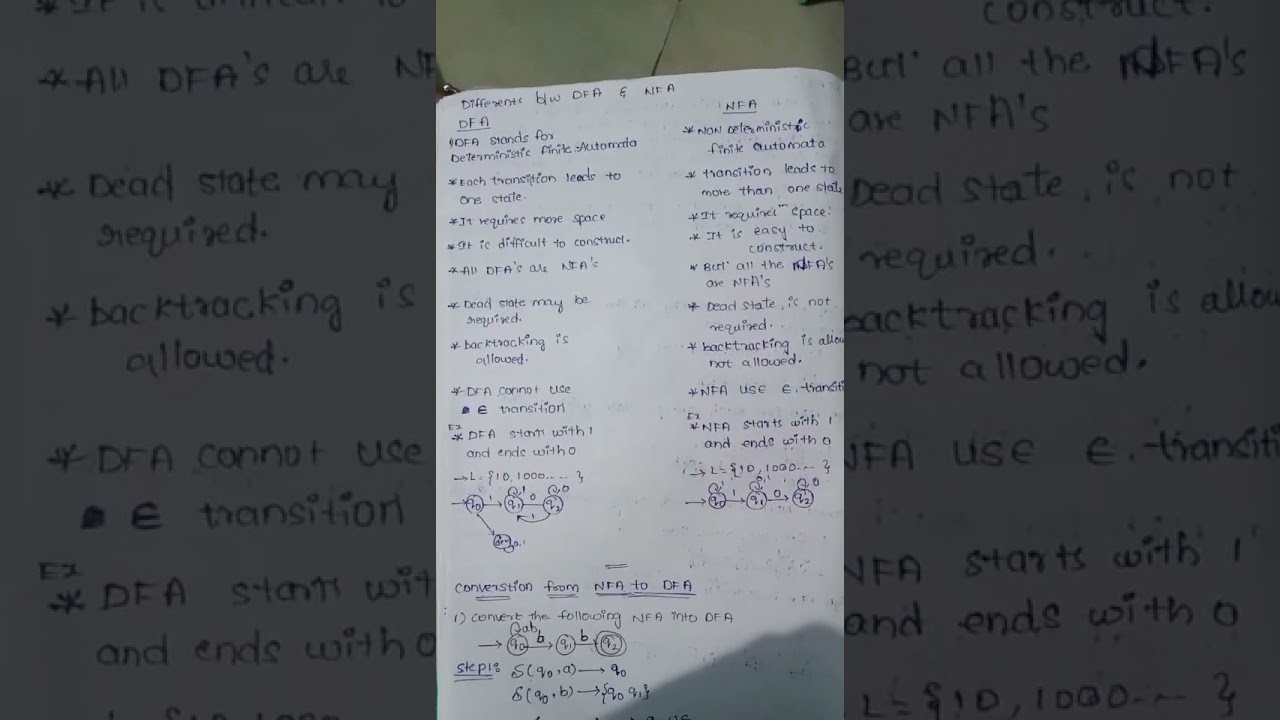 Differents b/w DFA & NFA
DFA
1) DFA stands for
Deterministic finite Automata
* Each transition leads to
one state.
* It requires more space
* It is difficult to construct.
* All DFA's are NFA's
* Dead state may be
required.
* backtracking is
allowed.
* DFA cannot use
∈ transition
Ex
* DFA starts with 1
and ends with 0
→ L = {10, 1000.... }
q0 1 q1 1 0 q2 0
1
0,1
NFA
* NON Deterministic
finite automata
* transition leads to
more than one state
* It requires space.
* It is easy to
construct.
* But all the NFA's
are NFA's
* Dead state, is not
required.
* backtracking is allow
not allowed.
* NFA USE ∈. transiti
Ex
* NFA starts with 1
and ends with 0
→ L = {10, 1000.... }
q0 1 q1 0 q2 0
converstion from NFA to DFA
1) convert the following NFA into DFA
q0 a,b b q1 b q2
Step1: δ(q0, a) → q0
δ(q0, b) → {q0 q1}